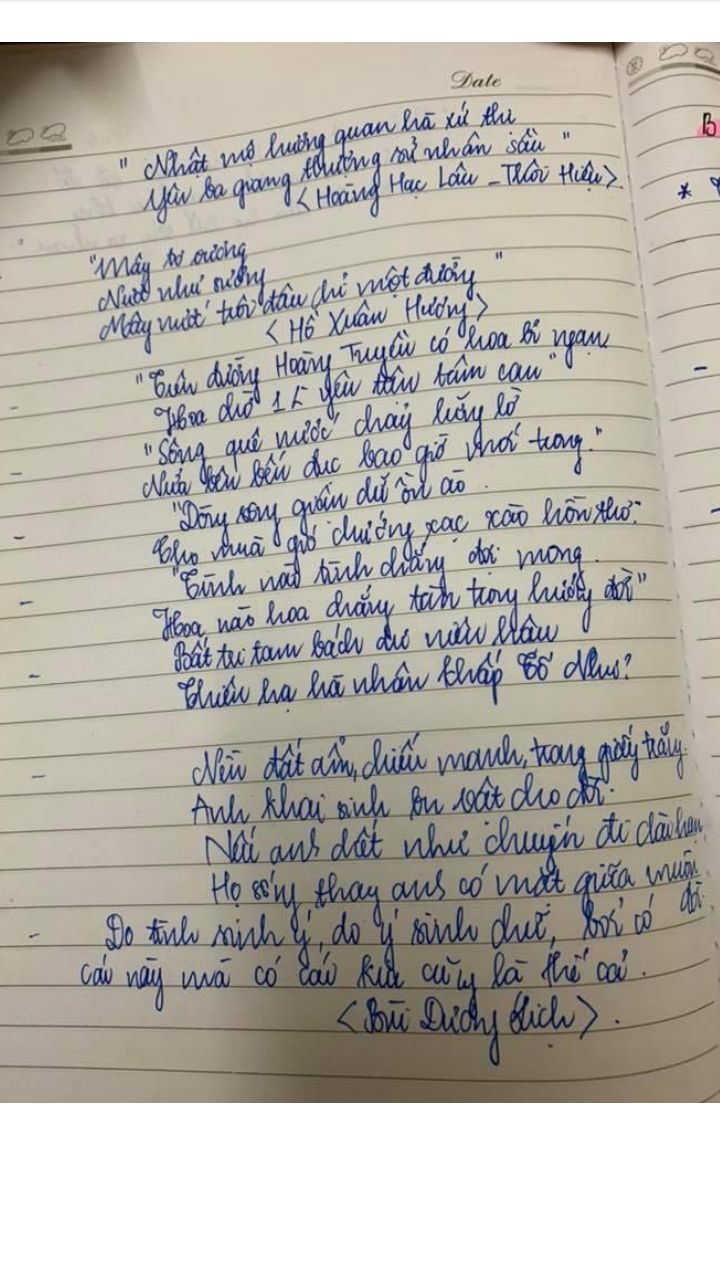 Date
" Nhật mộ hương quan hà xứ thị
Yên ba giang thượng sử nhân sầu "
<Hoàng Hạc Lâu - Thôi Hiệu>
"Mây tơ vương
Nước như vương
Mây nước trôi đâu chỉ một đường "
<Hồ Xuân Hương>
"Trên đường Hoàng Tuyền có hoa bỉ ngạn
Hoa chở 1 t/ yêu tâm can"
"Sông quê nước chảy lững lờ
Nửa bên bến đục bao giờ mới trong."
"Dòng sông giận dữ ồn ào
Cho mưa gió chướng xạc xào hồn thơ."
"Tình nào tình chẳng đợi mong
Hoa nào hoa chẳng tàn trong hướng đời"
Bất tri tam bách dư niên hậu
Thiên hạ hà nhân khấp Tố Như?
Nền đất ẩm, chiếu manh, trang giấy trắng.
Anh khai sinh sự vật cho đời.
Nếu anh chết như chuyến đi dài hạn
Họ sống thay anh có mặt giữa muôn đời.
Do tình sinh ý, do ý sinh chữ, bởi có
cái này mà có cái kia cũng là thế cả.
<Bùi Dương Lịch>.
B
*